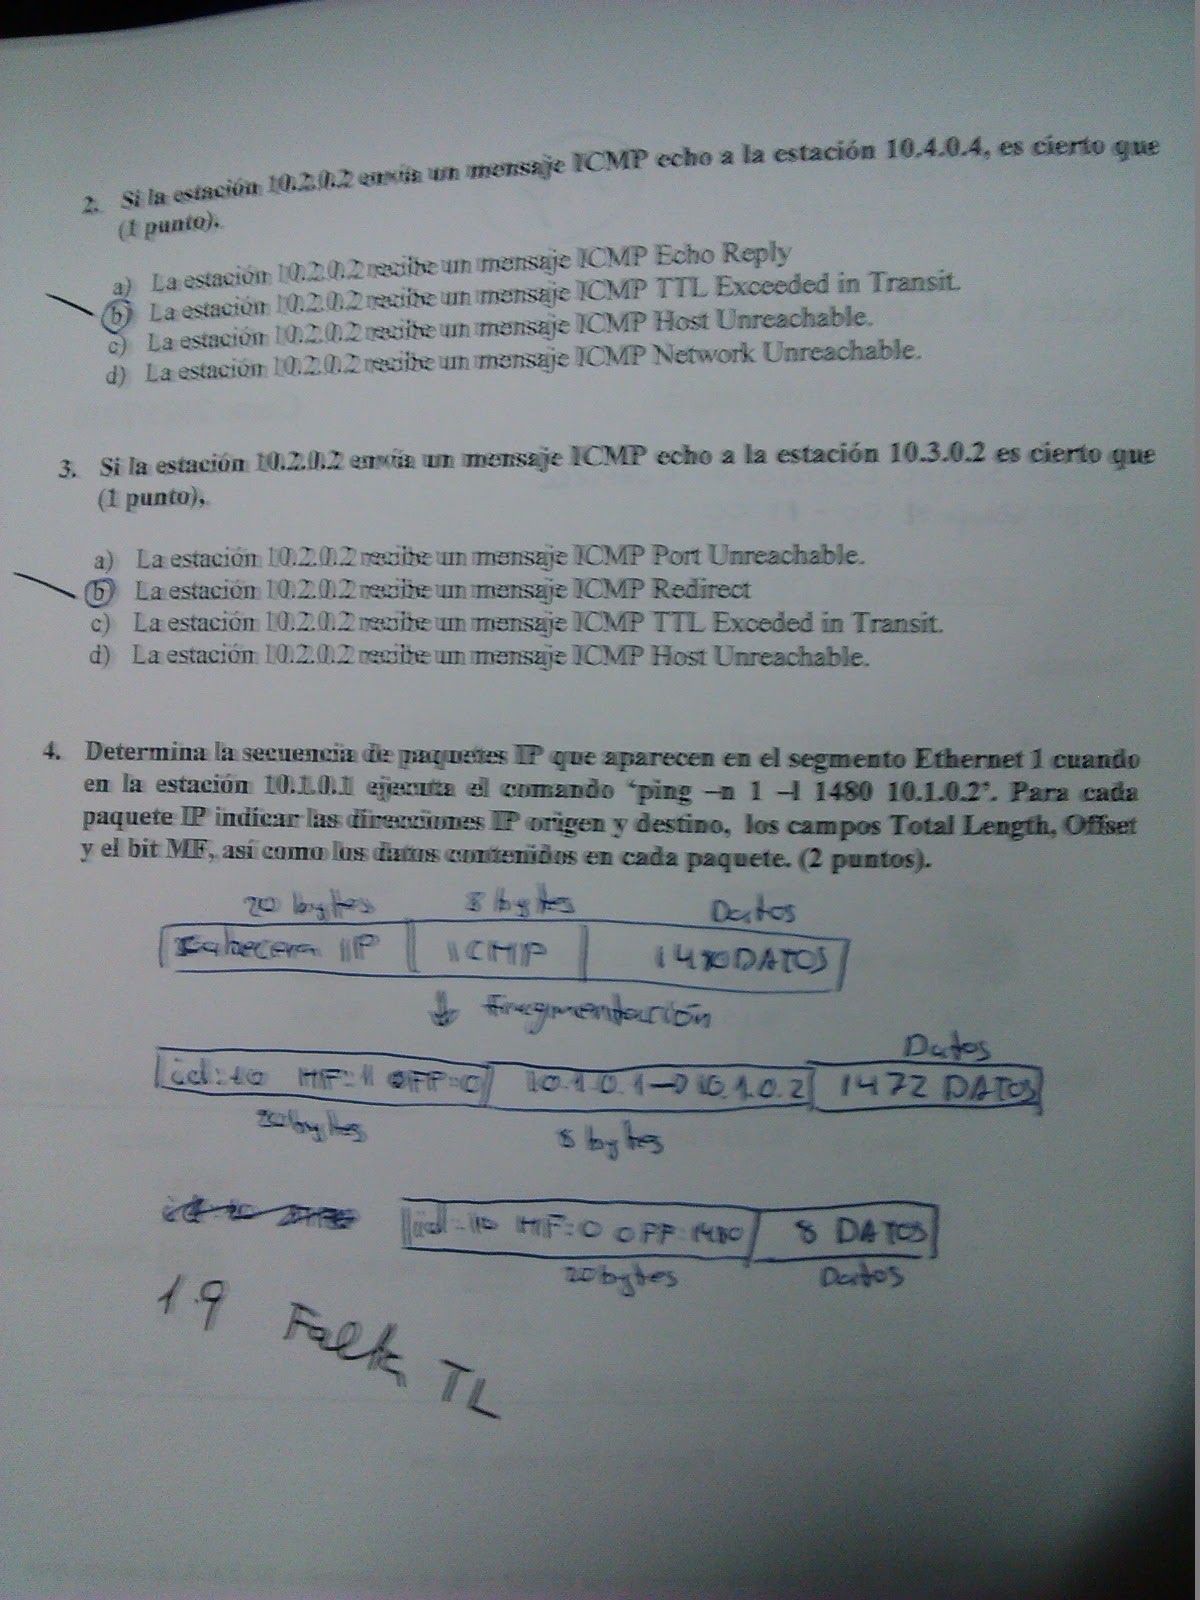 2. Si la estación 10.2.0.2 envía un mensaje ICMP echo a la estación 10.4.0.4, es cierto que
(1 punto).
a) La estación 10.2.0.2 recibe un mensaje ICMP Echo Reply
b) La estación 10.2.0.2 recibe un mensaje ICMP TTL Exceeded in Transit.
c) La estación 10.2.0.2 recibe un mensaje ICMP Host Unreachable.
d) La estación 10.2.0.2 recibe un mensaje ICMP Network Unreachable.
3. Si la estación 10.2.0.2 envía un mensaje ICMP echo a la estación 10.3.0.2 es cierto que
(1 punto),
a) La estación 10.2.0.2 recibe un mensaje ICMP Port Unreachable.
b) La estación 10.2.0.2 recibe un mensaje ICMP Redirect
c) La estación 10.2.0.2 recibe un mensaje ICMP TTL Exceded in Transit.
d) La estación 10.2.0.2 recibe un mensaje ICMP Host Unreachable.
4. Determina la secuencia de paquetes IP que aparecen en el segmento Ethernet 1 cuando
en la estación 10.1.0.1 ejecuta el comando ‘ping –n 1 –l 1480 10.1.0.2’. Para cada
paquete IP indicar las direcciones IP origen y destino, los campos Total Length, Offset
y el bit MF, así como los datos contenidos en cada paquete. (2 puntos).
20 bytes 8 bytes Datos
Cabecera IP ICMP 1480 DATOS
↓ Fragmentación
Datos
id:10 MF:1 OFF:0 10.1.0.1→10.1.0.2 1472 DATOS
20 bytes 8 bytes
id:10 MF:0 OFF:1480 8 DATOS
20 bytes Datos
1.9 Falta TL